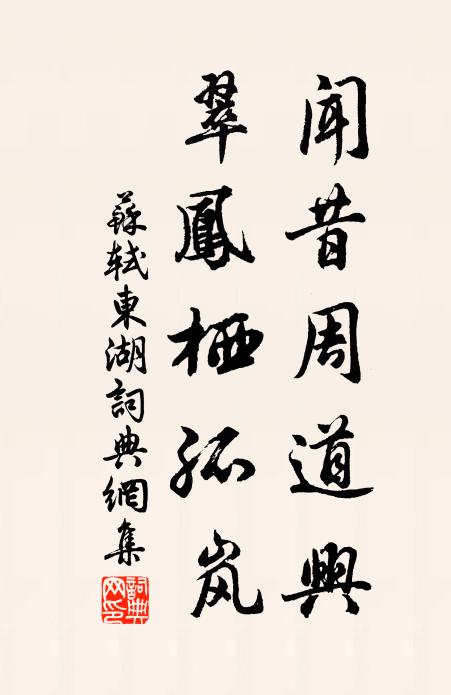 闻昔周道興
翠鳳栖孤岚
蘇轼東湖詞典網集
詞典网印